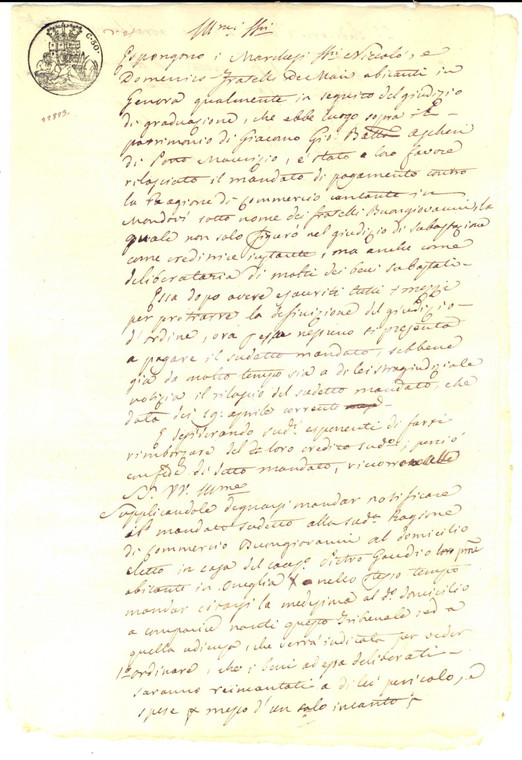 Ill.mi Ss.ri
C. 50
Espongono i Marchesi Ss.ri Niccolò, e
Domenico fratelli De Mari abitanti in
Genova qualmente in seguito del giudizio
di graduazione, che ebbe luogo sopra il
patrimonio di Giacomo Gio. Batta Ascheri
di Porto Maurizio, è stato a loro favore
rilasciato il mandato di pagamento contro
la Ragione di Commercio cantante in
Mondovì sotto nome dei fratelli Buongiovanni, la
quale non solo figurò nel giudizio di subastazione
come creditrice instante, ma anche come
deliberataria di molti dei beni subastati.
Essa dopo avere esauriti tutti i mezzi
per protrarre la definizione del giudizio
d'ordine, ora per essa nessuno si presenta
a pagare il sudetto mandato, sebbene
già da molto tempo sia a di lei stragiudiziale
notizia il rilascio del sudetto mandato, che
data dei 19 aprile corrente
E desiderando sud.i esponenti di farsi
rimborzare del loro credito sud.o, perciò
in fede di detto mandato, ricorrono alle
SS. VV. Ill.me
Supplicandole degnarsi mandar notificare
il mandato sudetto alla sud.a Ragione
di Commercio Buongiovanni al domicilio
eletto in casa del caus.o Pietro Gaudio loro proc.e
abitante in Oneglia e nello stesso tempo
mandar citarsi la medesima al d.o domicilio
a comparire nanti questo Tribunale, ed a
quella udienza, che verrà indicata per veder
1.o ordinare, che i beni ad essa deliberati
saranno reincantati a di lei pericolo, e
spese a mezzo d'un solo incanto;